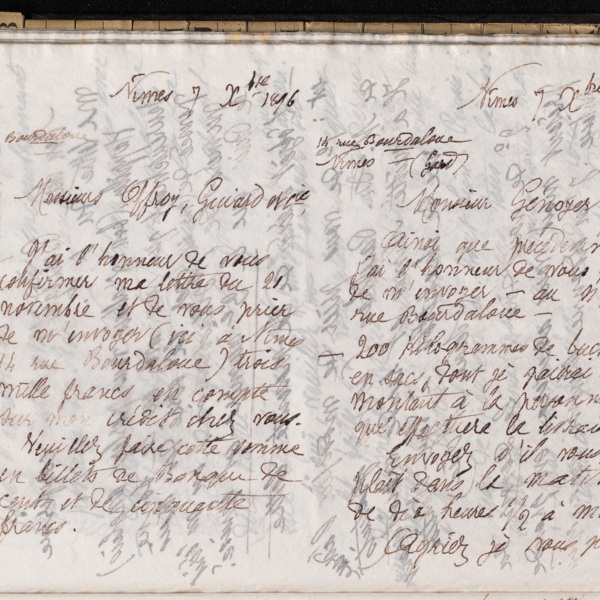 Nîmes 7 Xbre 1896
Bourdaloue
Messieurs Offroy, Guiard et Cie
J'ai l'honneur de vous
confirmer ma lettre du 21
novembre et de vous prier
de m'envoyer (ici à Nîmes
14 rue Bourdaloue) trois
mille francs en compte
sur mon crédit chez vous.
Veuillez faire cette somme
en billets de Banque de
cent et de cinquante
francs.
Nîmes 7 Xbre
14 rue Bourdaloue
Nîmes — (Gard)
Monsieur Genoyer
Ainsi que précédem
j'ai l'honneur de vous p
de m'envoyer — au n
rue Bourdaloue —
— 200 Kilogrammes de
en sacs, dont je paierai
montant à la personne
qui effectuera la livrais
Envoyez s'il vous
plaît dans la mati
de dix heures 1/2 à m
Agréez je vous p